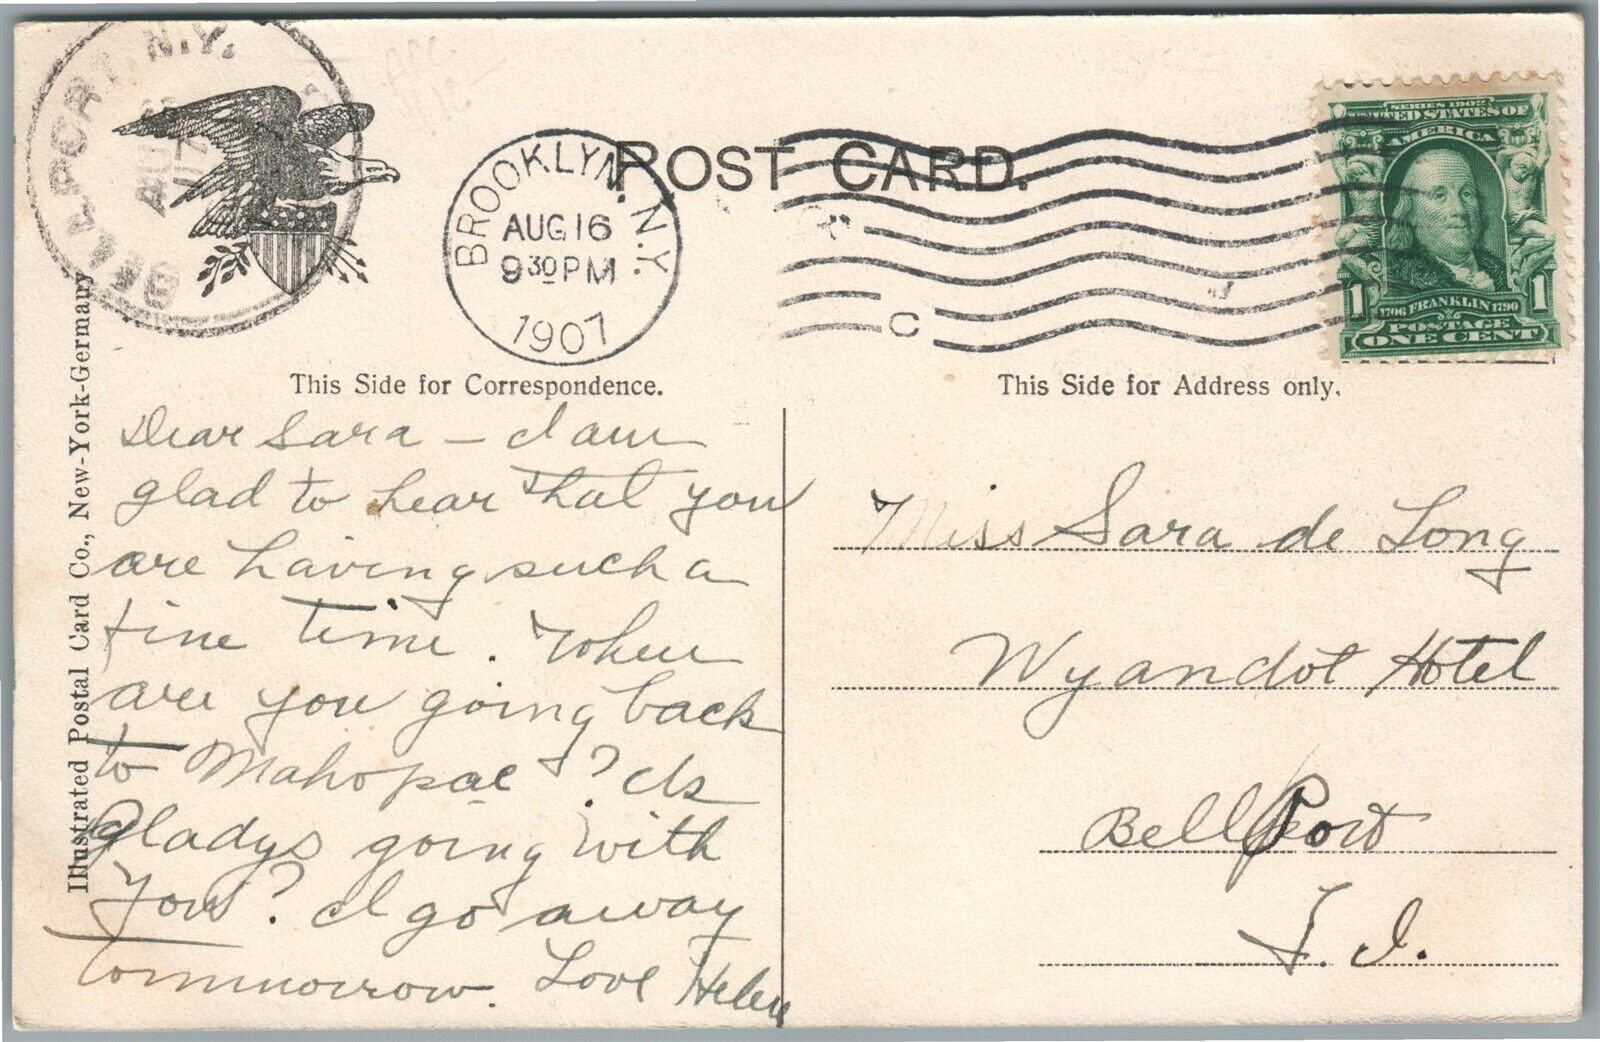 BELLPORT, N.Y.
AUG
17
BROOKLYN, N.Y.
AUG 16
9 30 PM
1907
POST CARD.
C
SERIES 1902
UNITED STATES OF
AMERICA
1 1
1706 FRANKLIN 1790
POSTAGE
ONE CENT
Illustrated Postal Card Co., New-York-Germany
This Side for Correspondence.
Dear Sara – I am
glad to hear that you
are having such a
fine time. When
are you going back
to Mahopac? Is
Gladys going with
you? I go away
tommorrow. Love Helen
This Side for Address only.
Miss Sara de Long
Wyandot Hotel
BellPort
L. I.